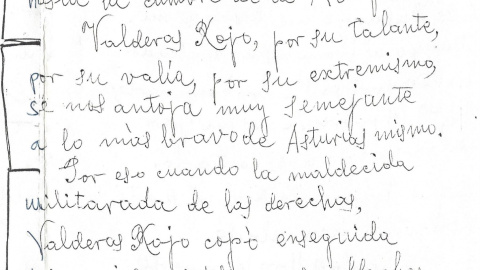 hasta la cumbre de la
Valderas Rojo, por su talante,
por su valía, por su extremismo,
se nos antoja muy semejante
a lo más bravo de Asturias mismo.
Por eso cuando la maldecida
militarada de las derechas,
Valderas Rojo copó enseguida